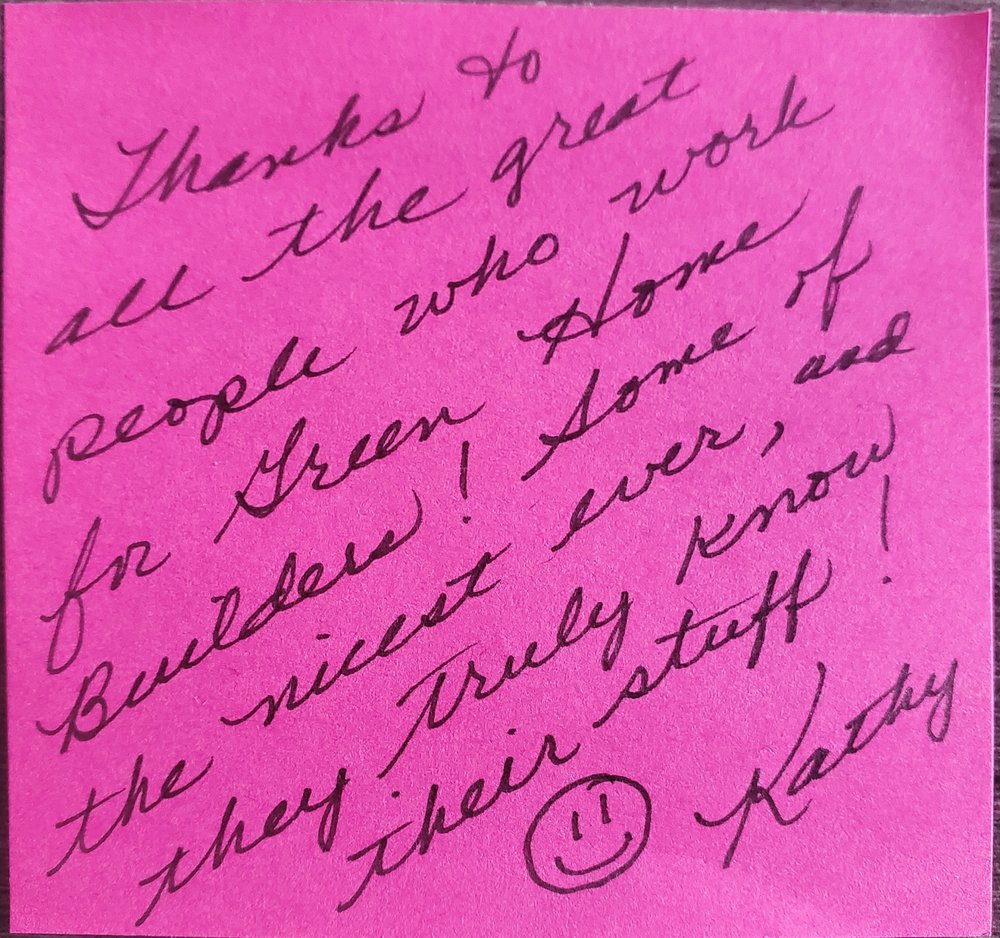 Thanks to
all the great
people who work
for Green Home
Builders! Some of
the nicest ever, and
they truly know
their stuff!
Kathy